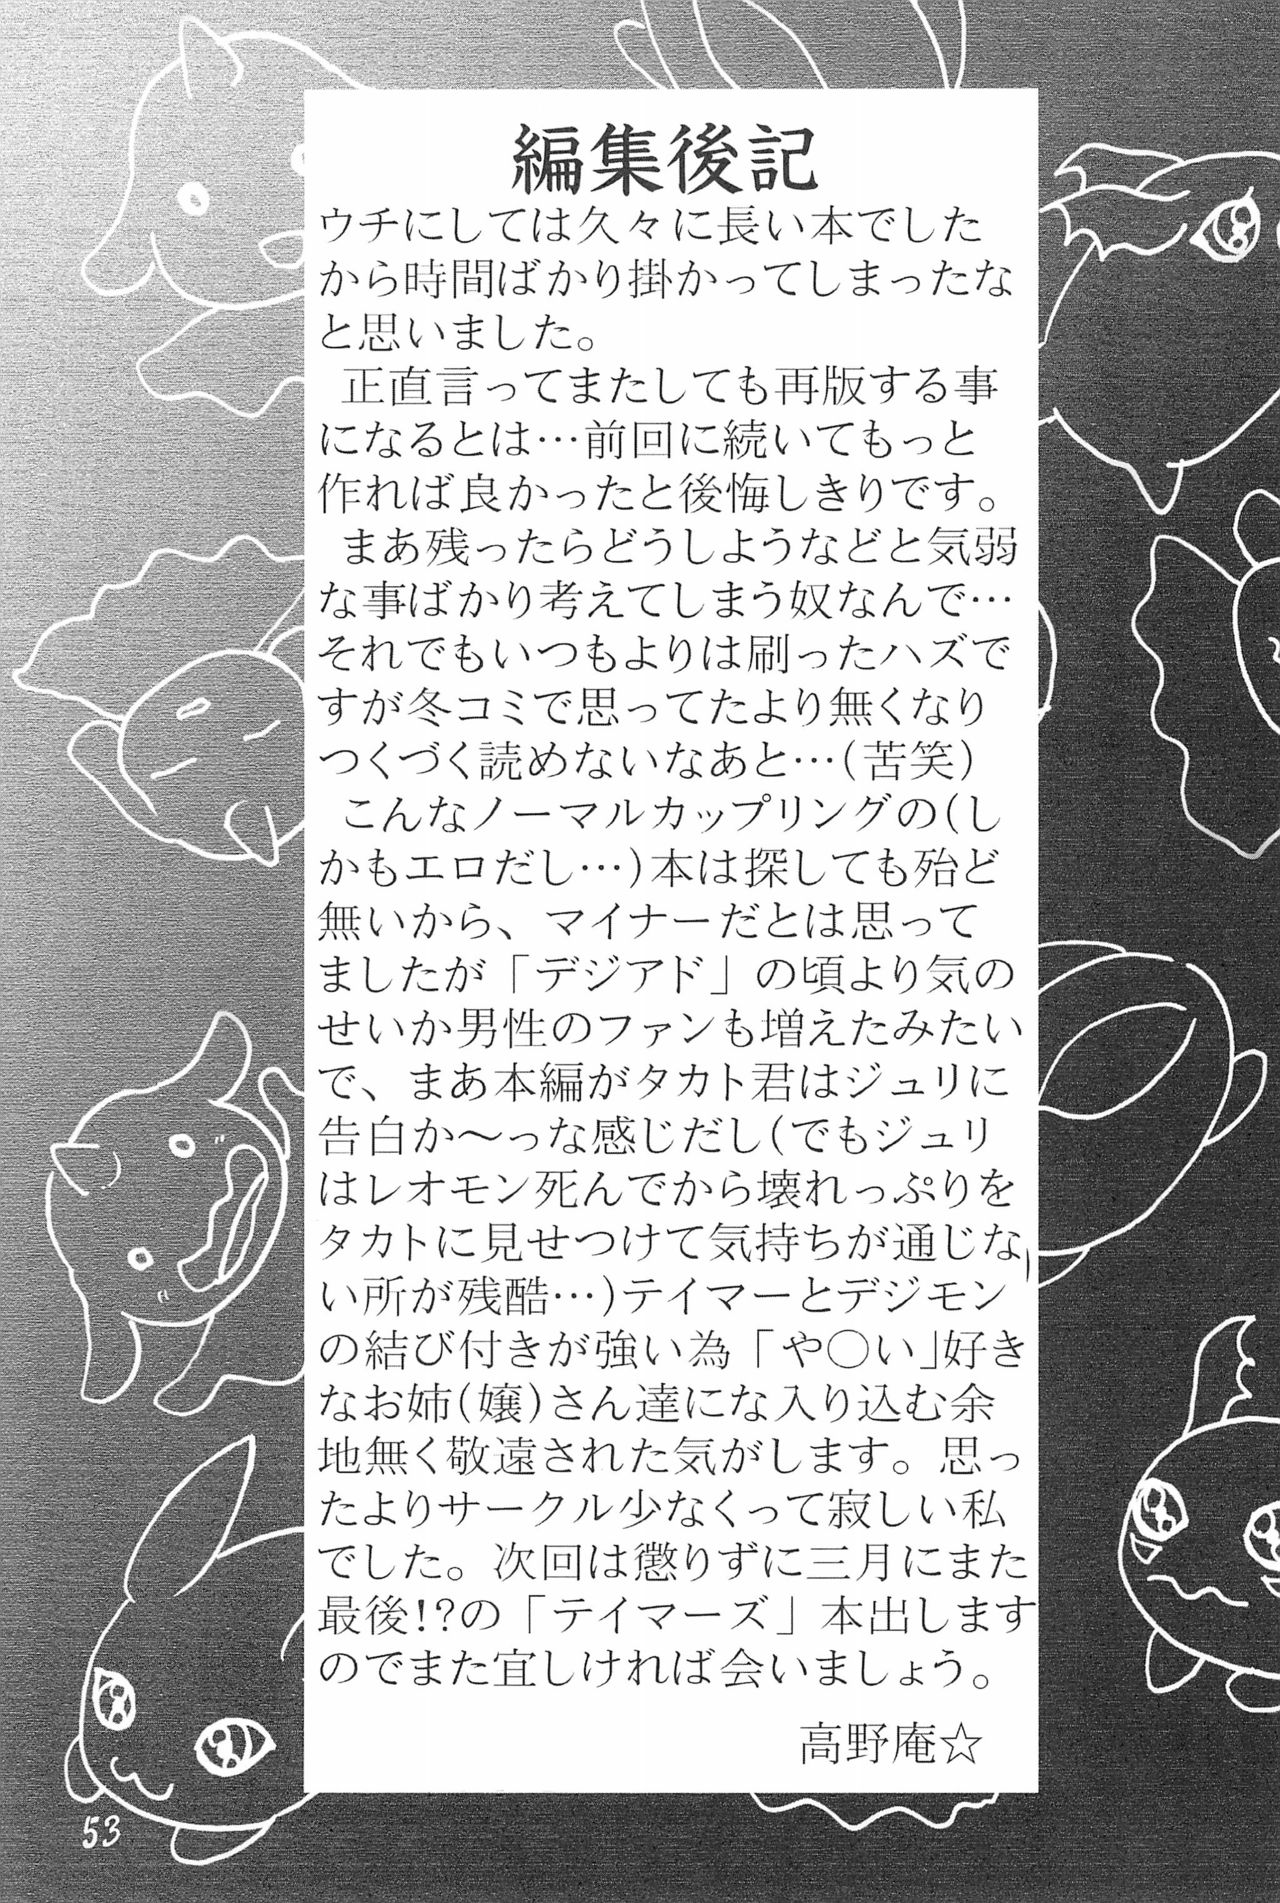 編集後記
ウチにしては久々に長い本でした
から時間ばかり掛かってしまったな
と思いました。
正直言ってまたしても再版する事
になるとは…前回に続いてもっと
作れば良かったと後悔しきりです。
まあ残ったらどうしようなどと気弱
な事ばかり考えてしまう奴なんで…
それでもいつもよりは刷ったハズで
すが冬コミで思ってたより無くなり
つくづく読めないなあと…(苦笑)
こんなノーマルカップリングの(し
かもエロだし…)本は探しても殆ど
無いから、マイナーだとは思って
ましたが「デジアド」の頃より気の
せいか男性のファンも増えたみたい
で、まあ本編がタカト君はジュリに
告白か～っな感じだし(でもジュリ
はレオモン死んでから壊れっぷりを
タカトに見せつけて気持ちが通じな
い所が残酷…)テイマーとデジモン
の結び付きが強い為「や○い」好き
なお姉(嬢)さん達にな入り込む余
地無く敬遠された気がします。思っ
たよりサークル少なくって寂しい私
でした。次回は懲りずに三月にまた
最後!?の「テイマーズ」本出します
のでまた宜しければ会いましょう。
高野庵☆
53